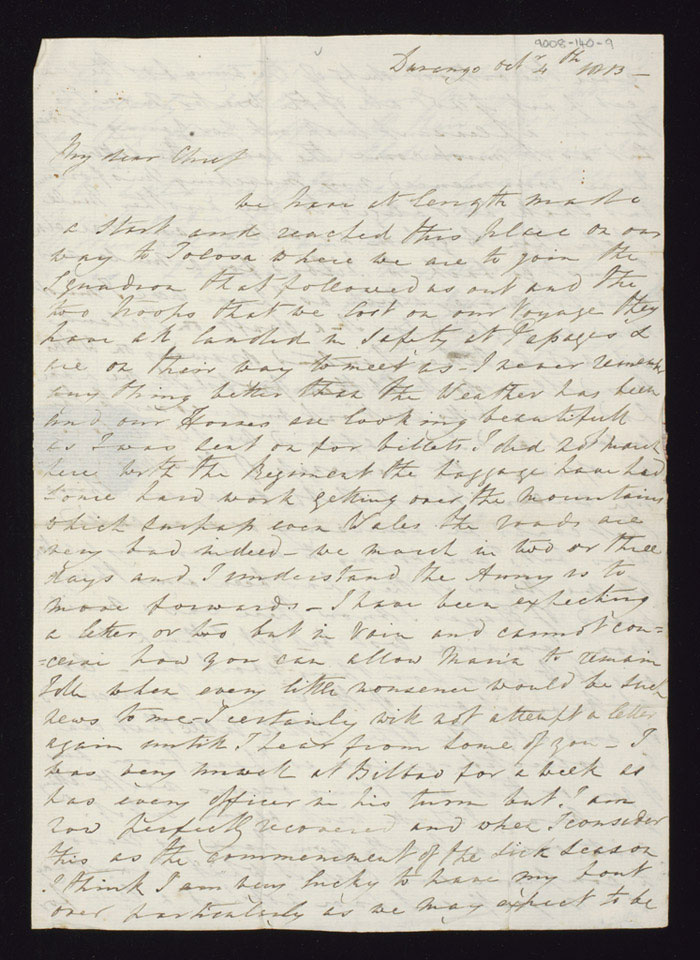 9008-140-9
Durango Octr 4th 1813 -
My dear Chief
We have at length made
a start and reached this place on our
way to Tolosa where we are to join the
Squadron that followed us out and the
two troops that we lost on our Voyage they
have all landed in Safety at Papages &
are on their way to meet us - I never remember
any thing better than the Weather has been
and our Horses are looking beautifull
as I was sent on for billets I did not march
here with the Regiment the baggage have had
some hard work getting over the Mountains
which surpass even Wales the roads are
very bad indeed - we march in two or three
days and I understand the Army is to
move forwards - I have been expecting
a letter or two but in vain and cannot con=
=ceive how you can allow Maria to remain
Idle when every little nonsence would be such
news to me - I certainly will not attempt a letter
again untill I hear from some of you - I
was very unwell at Bilbao for a week as
has every officer in his turn but I am
now perfectly recovered and when I consider
this as the commencment of the Sick Season
I think I am very lucky to have my bout
over particularly as we may expect to be